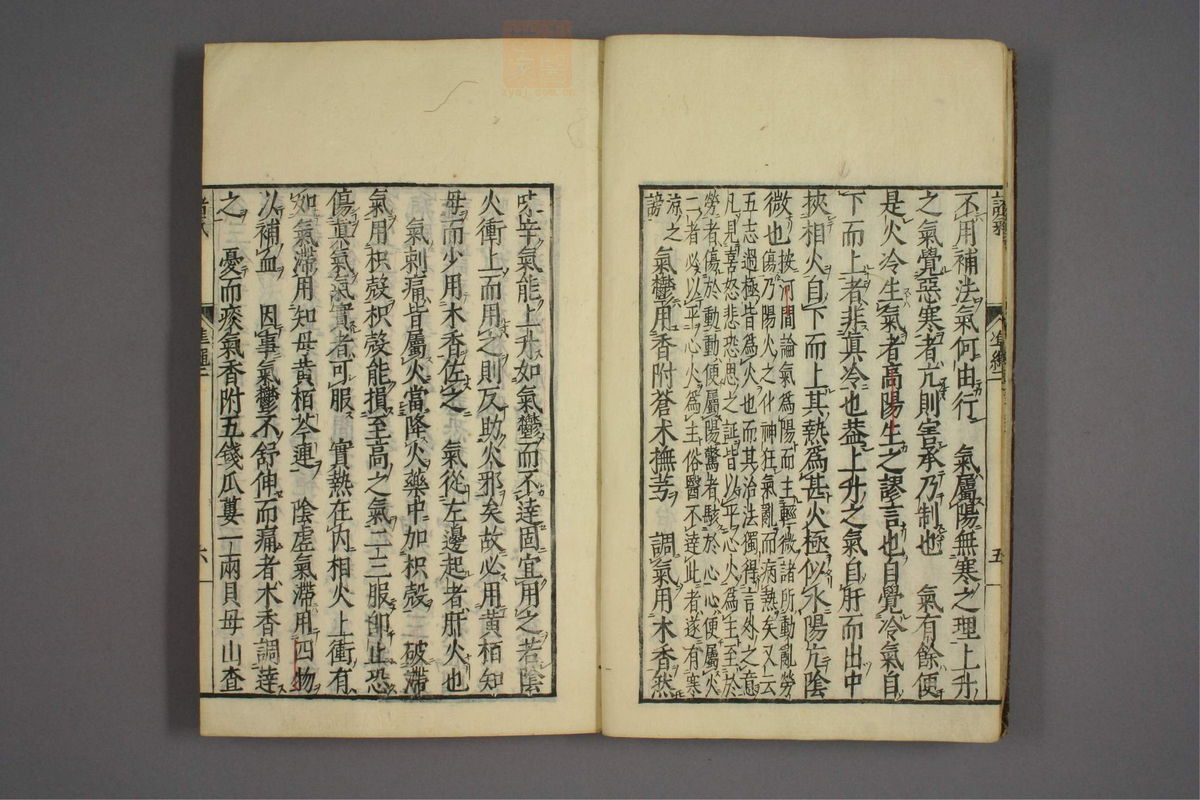 不用補法氣何由行　氣屬陽無寒之理上升
之氣覺惡寒者亢則害承乃制也　氣有餘便
是火冷生氣者高陽生之謬言也自覺冷氣自
下而上者非真冷也蓋上升之氣自肝而出中
挾相火自下而上其熱爲甚火極似水陽亢陰
微也按河間論氣爲陽而主輕微諸所動亂勞
傷乃陽火之化神狂氣亂而病熱矣又云
五志過極皆爲火也而其治法獨得言外之意
凡見喜怒悲恐思之証皆以平心火爲主至於
勞者傷於動動便屬陽驚者駭於心心便屬火
二者必以平心火爲主俗醫不達此者遂有寒
涼之
謗　氣鬱用香附蒼朮撫芎　調氣用木香然
味辛氣能上升如氣鬱而不達固宜用之若陰
火衝上而用之則反助火邪矣故必用黃栢知
母而少用木香佐之　氣從左邊起者肝火也
氣刺痛皆屬火當降火藥中加枳殼　破滯
氣用枳殼枳殼能損至高之氣二三服卽止恐
傷真氣氣實者可服　實熱在內相火上衝有
如氣滯用知母黃栢芩連　陰虛氣滯用四物
以補血　因事氣鬱不舒伸而痛者木香調達
之　憂而痰氣香附五錢瓜蔞一兩貝母山查
準繩二
五
六